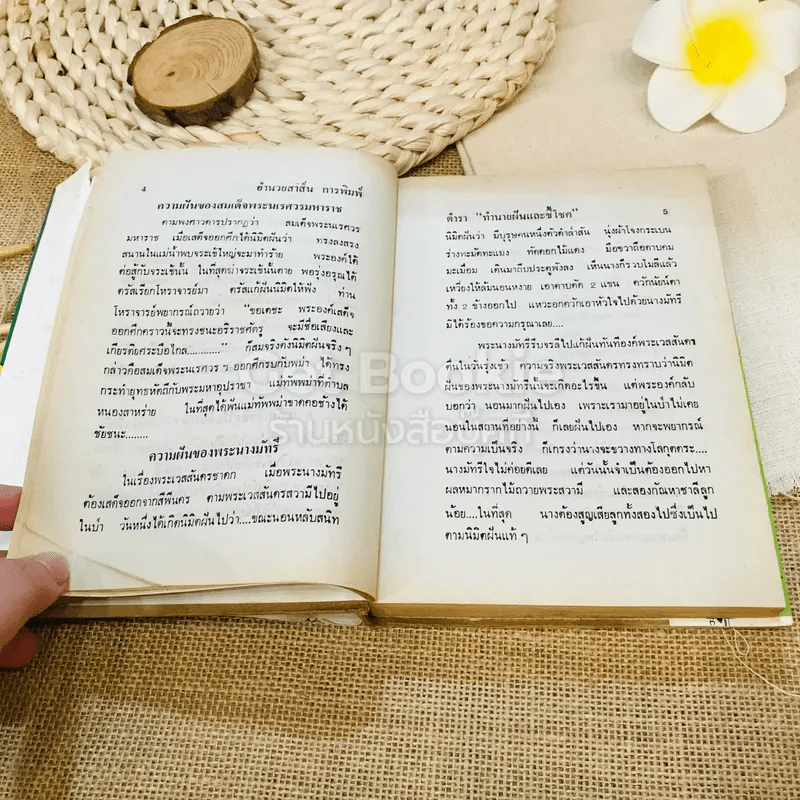 4 อำนวยสาส์น การพิมพ์
ความฝันของสมเด็จพระนเรศวรมหาราช
ตามพงศาวดารปรากฏว่า สมเด็จพระนเรศวร
มหาราช เมื่อเสด็จออกศึกได้นิมิตฝันว่า ทรงลงสรง
สนานในแม่น้ำพบจระเข้ใหญ่จะมาทำร้าย พระองค์ได้
ต่อสู้กับจระเข้นั้น ในที่สุดฆ่าจระเข้นั้นตาย พอรุ่งอรุณได้
ตรัสเรียกโหราจารย์มา ตรัสแก้ฝันนิมิตให้ฟัง ท่าน
โหราจารย์พยากรณ์ถวายว่า “ขอเดชะ พระองค์เสด็จ
ออกศึกคราวนี้จะทรงชนะอริราชศัตรู จะมีชื่อเสียงและ
เกียรติยศระบือไกล...........” ก็สมจริงดังนิมิตฝันจริง ๆ
กล่าวคือสมเด็จพระนเรศวร ฯ ออกศึกรบกับพม่า ได้ทรง
กระทำยุทธหัตถีกับพระมหาอุปราชา แม่ทัพพม่าที่ตำบล
หนองสาหร่าย ในที่สุดได้ฟันแม่ทัพพม่าขาดคอช้างได้
ชัยชนะ........
ความฝันของพระนางมัทรี
ในเรื่องพระเวสสันดรชาดก เมื่อพระนางมัทรี
ต้องเสด็จออกจากสีพีนคร ตามพระเวสสันดรสวามีไปอยู่
ในป่า วันหนึ่งได้เกิดนิมิตฝันไปว่า....ขณะนอนหลับสนิท
ตำรา “ทำนายฝันและชี้โชค” 5
นิมิตฝันว่า มีบุรุษคนหนึ่งตัวดำล่ำสัน นุ่งผ้าโจงกระเบน
ร่างทะมัดทะแมง ทัดดอกไม้แดง มือขวาถือดาบคม
มะเมื่อม เดินมาถีบประตูพังลง เห็นนางก็รวบโมลีแล้ว
เหวี่ยงให้ล้มนอนหงาย เอาดาบตัด 2 แขน ควักนัยน์ตา
ทั้ง 2 ข้างออกไป แหวะอกควักเอาหัวใจไปด้วยนางมัทรี
มิได้ร้องขอความกรุณาเลย....
พระนางมัทรีรีบจรลีไปแก้ฝันทันทีองค์พระเวสสันดร
ตื่นในวันรุ่งเช้า ความจริงพระเวสสันดรทรงทราบว่านิมิต
ฝันของพระนางมัทรีนั้นจะเกิดอะไรขึ้น แต่พระองค์กลับ
บอกว่า นอนมากฝันไปเอง เพราะเรามาอยู่ในป่าไม่เคย
นอนในสถานที่อย่างนี้ ก็เลยฝันไปเอง หากจะพยากรณ์
ตามความเป็นจริง ก็เกรงว่านางจะขวางทางโลกุตตระ....
นางมัทรีใจไม่ค่อยดีเลย แต่วันนั้นจำเป็นต้องออกไปหา
ผลหมากรากไม้ถวายพระสวามี และสองกัณหาชาลีลูก
น้อย....ในที่สุด นางต้องสูญเสียลูกทั้งสองไปซึ่งเป็นไป
ตามนิมิตฝันแท้ ๆ
ร้านหนังสือบุ๊คที่